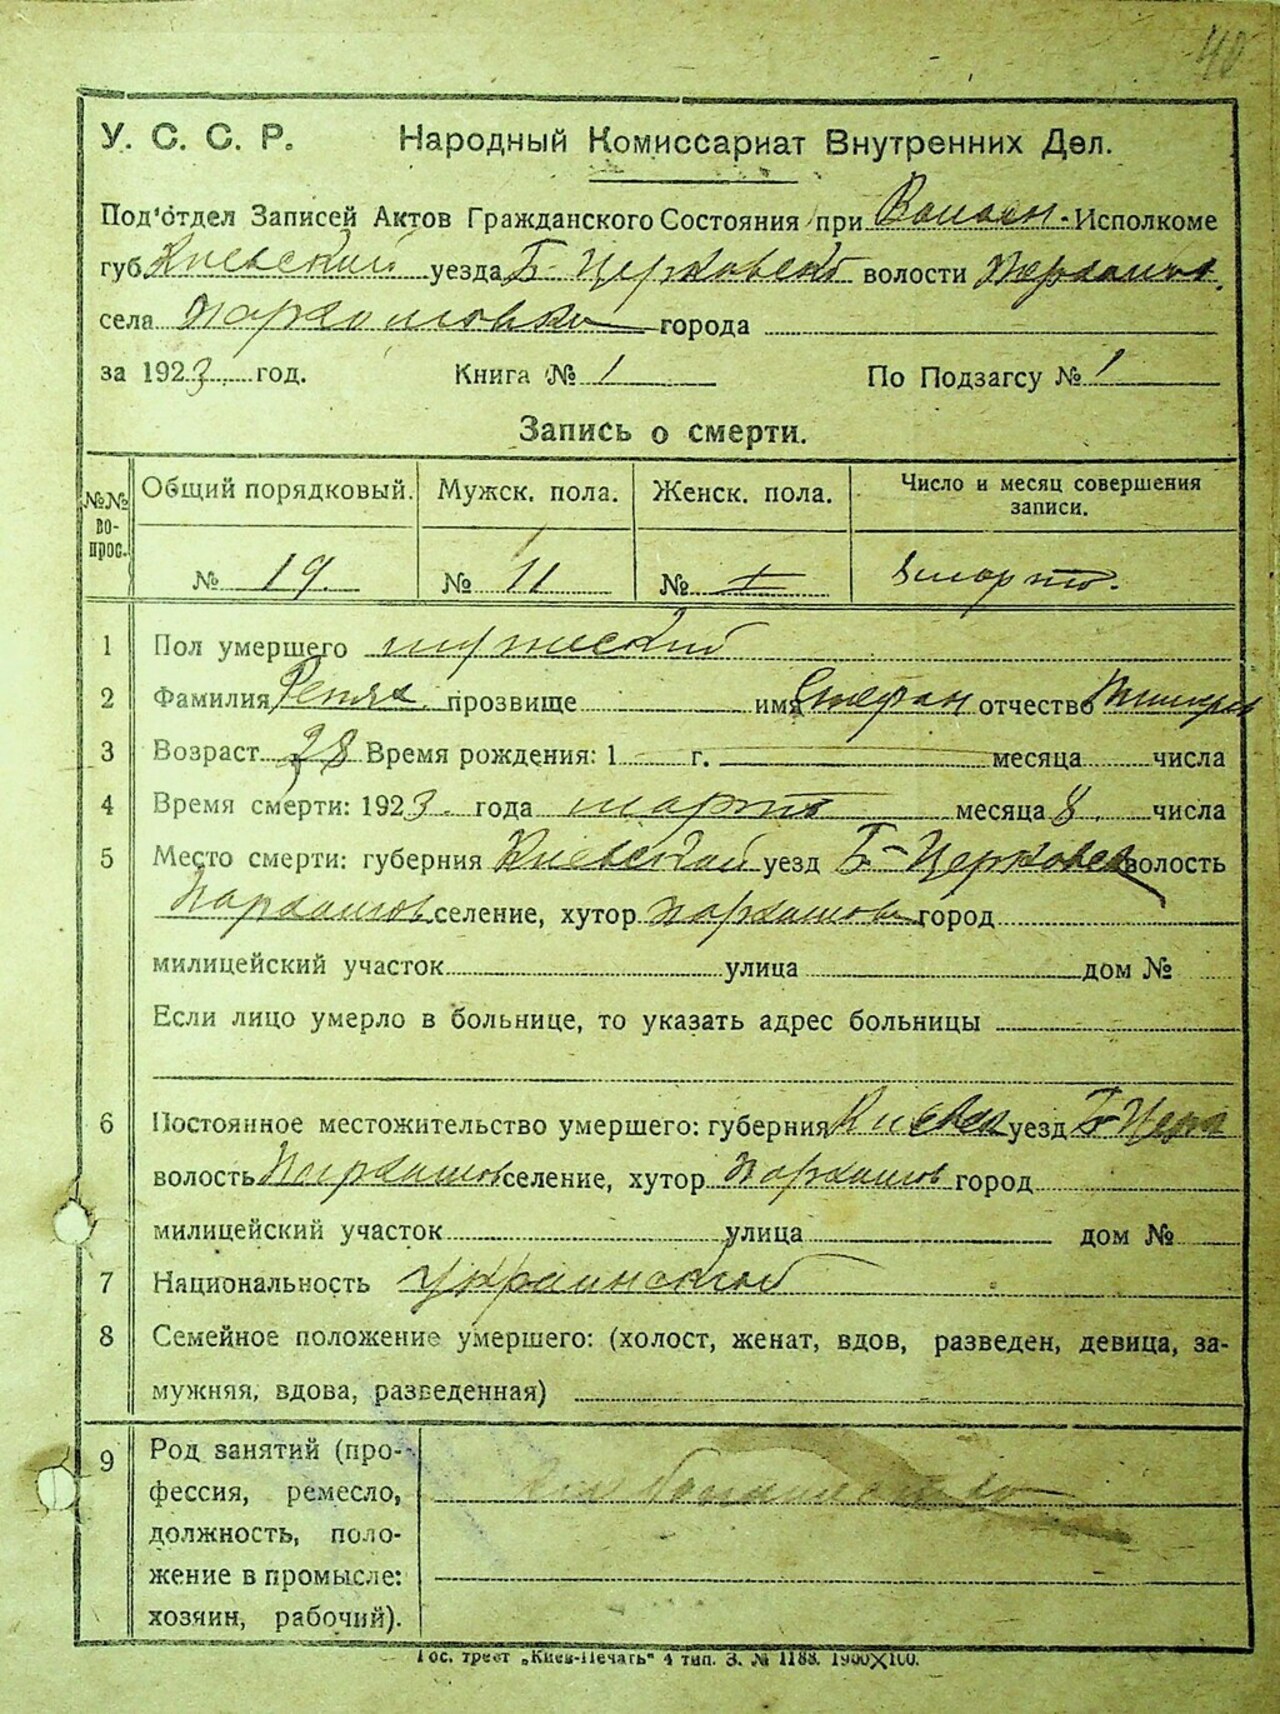 40
У. С. С. Р. Народный Комиссариат Внутренних Дел.
Под'отдел Записей Актов Гражданского Состояния при Волосн.-Исполкоме
губ. Киевский уезда Б-Церковской волости Пархомов.
села Пархомовка города
за 1923 год. Книга № 1 По Подзагсу № 1
Запись о смерти.
№№ вопрос. Общий порядковый. Мужск. пола. Женск. пола. Число и месяц совершения
записи.
№ 19. № 11 № 8 марта.
1 Пол умершего мужеский
2 Фамилия Репях прозвище имя Стефан отчество
3 Возраст 28 Время рождения: 1 г. месяца числа
4 Время смерти: 1923. года марта месяца 8. числа
5 Место смерти: губерния Киевской уезд Б-Церковск волость
Пархомов. селение, хутор Пархомовк город
милицейский участок улица дом №
Если лицо умерло в больнице, то указать адрес больницы
6 Постоянное местожительство умершего: губерния Киевск уезд Б-Церк
волость Пархомов селение, хутор Пархомов город
милицейский участок улица дом №
7 Национальность украинской
8 Семейное положение умершего: (холост, женат, вдов, разведен, девица, за-
мужняя, вдова, разведенная)
9 Род занятий (про-
фессия, ремесло, хлебопашество
должность, поло-
жение в промысле:
хозяин, рабочий).
Гос. трест „Киев-Печать" 4 тип. З. № 1188. 1900X100.